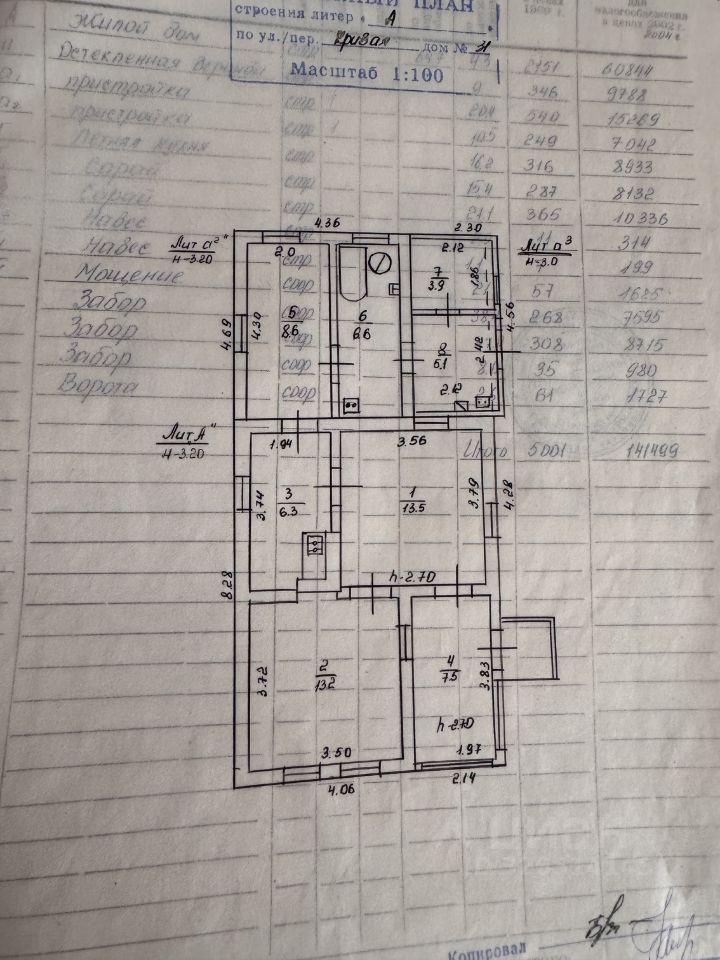 ПЛАН
строения литер „ А
по ул./пер. Кривая дом № 31
Масштаб 1:100
1969 г.
налогообложения
в ценах 2002 г.
2004 г.
Жилой дом 2151 60844
Остекленная веранда стр 9 346 9788
пристройка стр 20,4 540 15269
пристройка стр 10,5 249 7042
Летняя кухня стр 16,2 316 8933
Сарай стр 15,4 287 8132
Сарай стр 21,1 365 10336
Навес стр 11 314
Навес стр 199
Мощение соор 57 1625
Забор соор 268 7595
Забор соор 308 8715
Забор соор 35 980
Ворота соор 61 1727
Итого 5001 141499
4.36
2.30
Лит а²"
н-3.20
2.0
2.12
Лит а³
н-3.0
7
3.9
1.86
4.69
4.30
5
8.6
6
6.6
8
5.1
2.42
4.56
2.12
Лит А"
н-3.20
1.94
3.56
3.74
3
6.3
1
13.5
3.79
4.28
h-2.70
8.28
3.72
2
13.2
4
7.5
3.83
h-2.70
3.50
1.97
4.06
2.14
Копировал